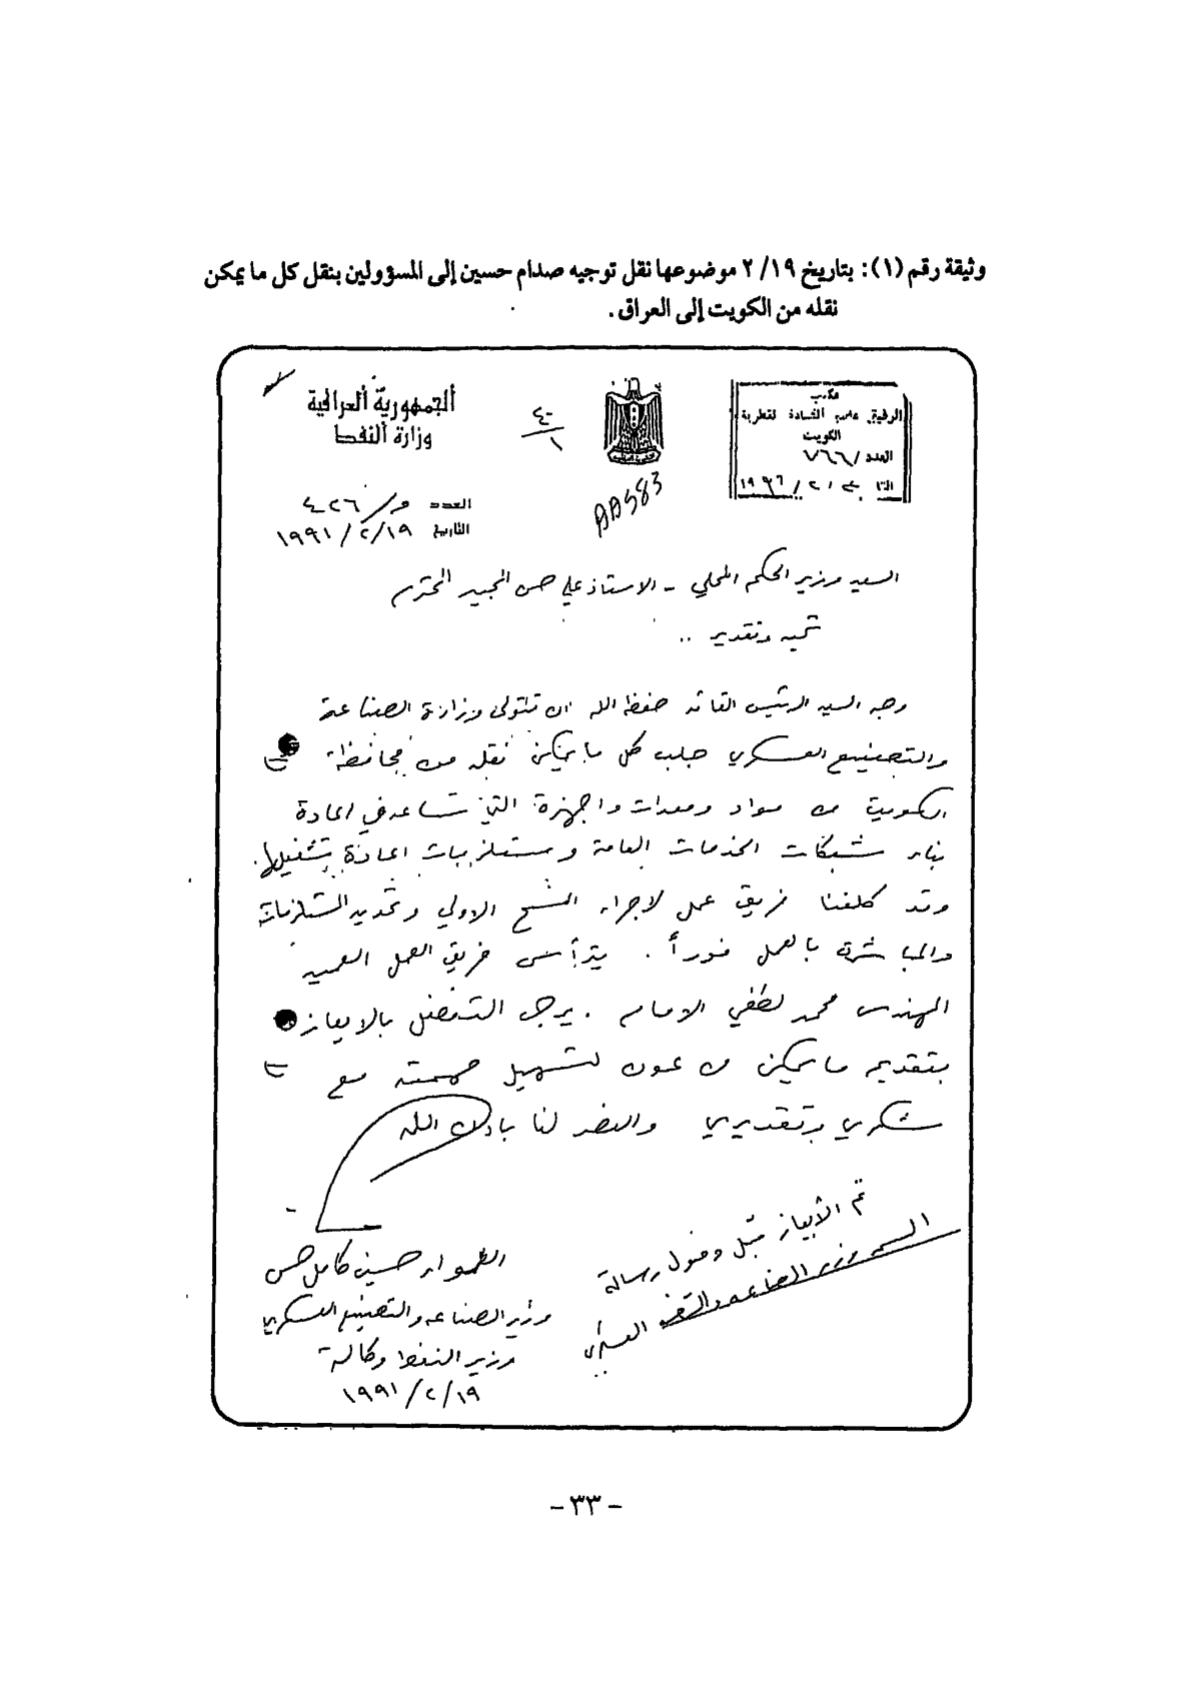 وثيقة رقم (١): بتاريخ ١٩/ ٢ موضوعها نقل توجيه صدام حسين إلى المسؤولين بنقل كل ما يمكن
نقله من الكويت إلى العراق.
الجمهورية العراقية
وزارة النفط
٤٠
١
مكتب
الرفيق القيادة القطرية
الكويت
العدد /٧٦٦
العدد و/٤٠٢٦
التاريخ ١٩/٢/١٩٩١
AA583
السيد وزير الحكم المحلي - الاستاذ علي حسن المجيد المحترم
تحية وتقدير ..
وجه السيد الرئيس القائد حفظه الله ان تتولى وزارة الصناعة
والتصنيع العسكري جلب كل ما يمكن نقله من محافظة
الكويت من مواد ومعدات واجهزة التي تساعد في اعادة
بناء شبكات الخدمات العامة ومستلزمات اعادة تشغيلها.
وقد كلفنا فريق عمل لاجراء المسح الاولي وتحديد المستلزمات
والمباشرة بالعمل فوراً. يترأس فريق العمل العميد
المهندس محمد لطفي الامام. يرجى التفضل بالايعاز
بتقديم ما يمكن من عون لتسهيل مهمته مع
شكري وتقديري والنصر لنا باذن الله
تم الأيعاز قبل وصول رسالة
السيد وزير الصناعة والتصنيع
العسكري
اللواء حسين كامل حسن
وزير الصناعة والتصنيع العسكري
وزير النفط وكالة
١٩/٢/١٩٩١
- ٣٣ -